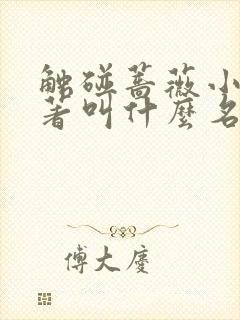 触碰蔷薇小
著叫什麼名
傅大慶